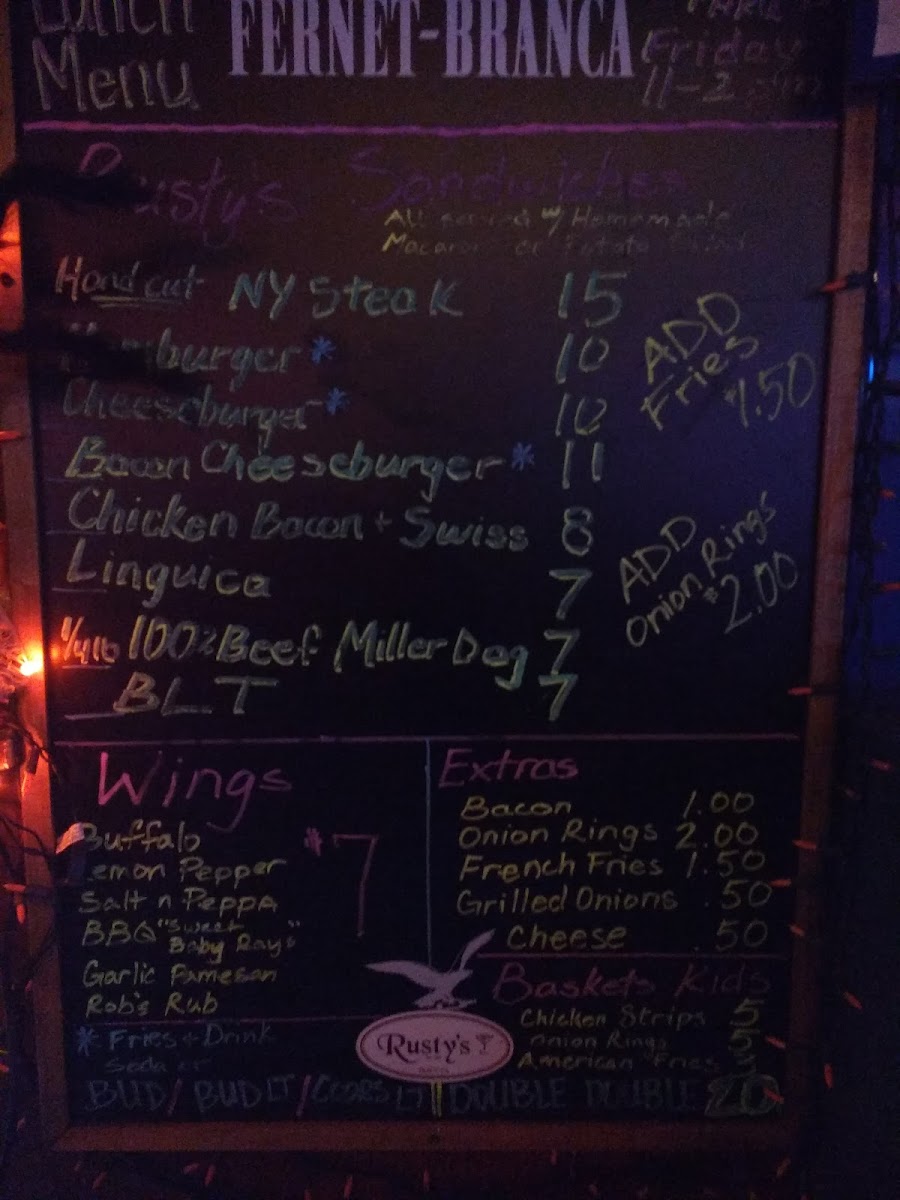 Lunch
Menu
FERNET-BRANCA
Friday
11-2
Rusty's Sandwiches
All served w/ Homemade
Macaroni or Potato Salad
Hand cut NY Steak 15
Hamburger* 10
Cheeseburger* 10
Bacon Cheeseburger* 11
Chicken Bacon + Swiss 8
Linguica 7
1/4 lb 100% Beef Miller Dog 7
BLT 7
ADD
Fries
$1.50
ADD
Onion Rings
$2.00
Wings
$7
Buffalo
Lemon Pepper
Salt n Peppa
BBQ "Sweet
Baby Rays"
Garlic Parmesan
Rob's Rub
* Fries + Drink
Soda or
BUD/BUD LT/COORS LT
Extras
Bacon 1.00
Onion Rings 2.00
French Fries 1.50
Grilled Onions .50
Cheese .50
Baskets Kids
Chicken Strips 5
Onion Rings 5
American Fries 3
DOUBLE DOUBLE 20
Rusty's